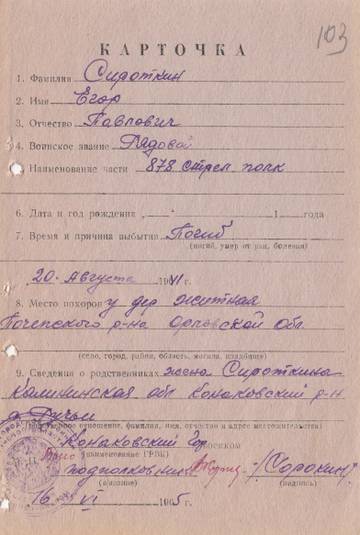 103
КАРТОЧКА
1. Фамилия Сироткин
2. Имя Егор
3. Отчество Павлович
4. Воинское звание Рядовой
Наименование части 878 стрел. полк
6. Дата и год рождения „ “ 1 года
7. Время и причина выбытия Погиб
(погиб, умер от ран, болезни)
20. Августа 1941г.
8. Место похорон у дер Житная
Почепского р-на Орловской обл.
(село, город, район, область, могила, кладбище)
9. Сведения о родственниках жена Сироткина
Калининская обл Конаковский р-н
(родственное отношение, фамилия, имя, отчество и адрес местожительства)
Конаковский Гор военком
(наименование ГРВК)
подполковник /Сорокин/
(звание) (подпись)
16 VI 1965г.